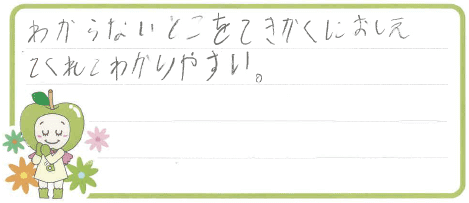 わからないとこをてきかくにおしえ
てくれてわかりやすい。